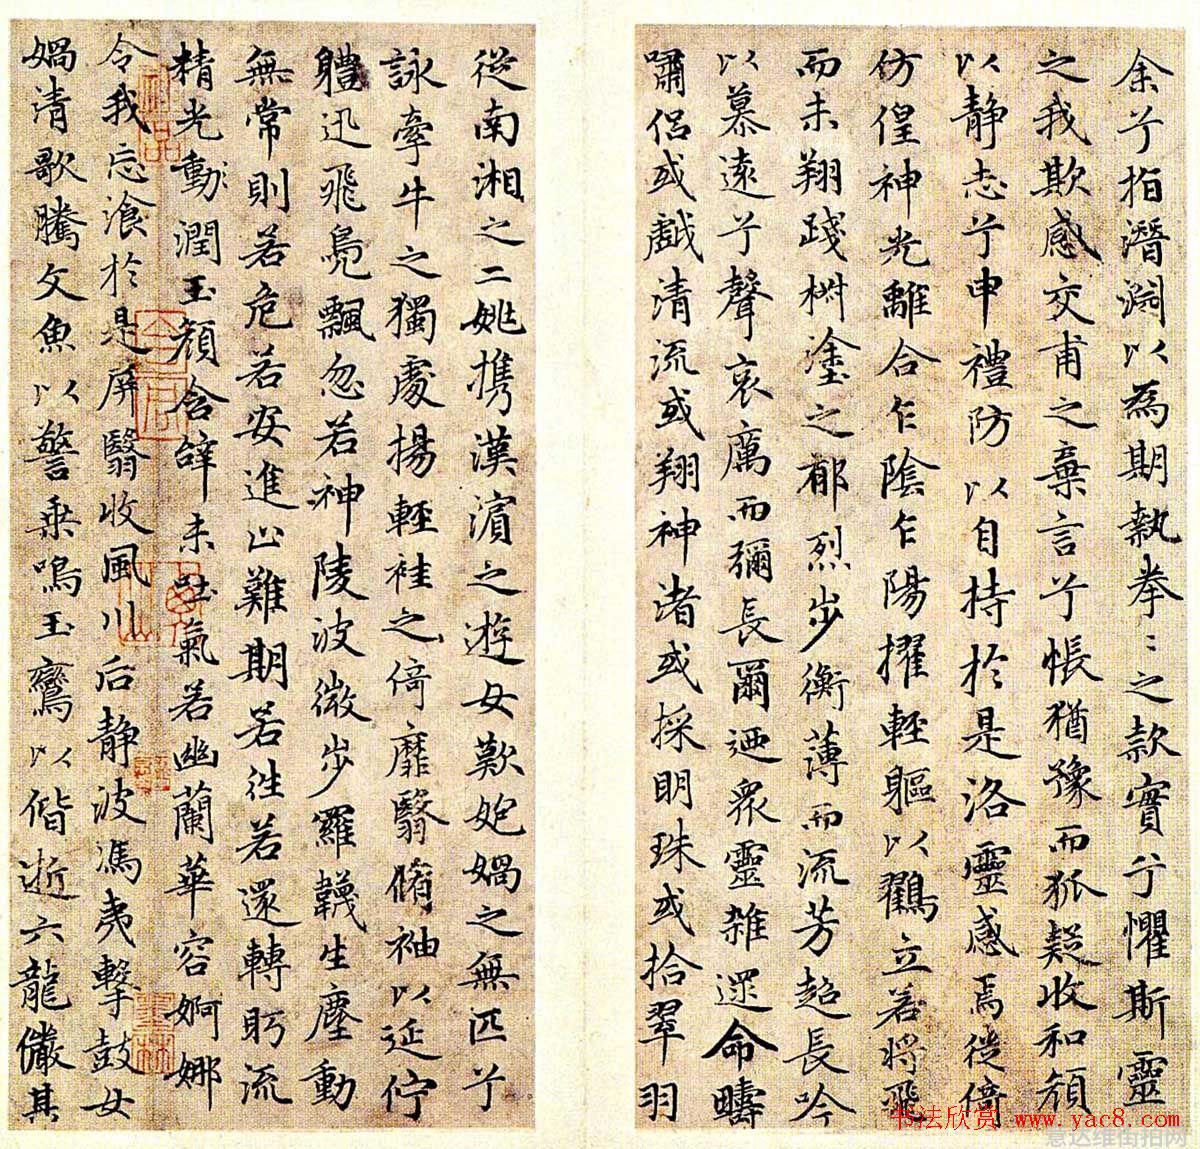 余兮指潛淵以為期執拳〻之款實兮懼斯靈
之我欺感交甫之棄言兮悵猶豫而狐疑收和顏
以静志兮申禮防以自持於是洛靈感焉徙倚
仿偟神光離合乍陰乍陽擢輕軀以鶴立若將飛
而未翔踐椒塗之郁烈步衡薄而流芳超長吟
以慕遠兮聲哀厲而彌長爾迺衆靈雜遝命疇
嘯侶或戲清流或翔神渚或採明珠或拾翠羽
從南湘之二姚攜漢濵之遊女歎匏媧之無匹兮
詠牽牛之獨處揚輕袿之倚靡翳脩袖以延佇
軆迅飛鳧飄忽若神陵波微步羅韈生塵動
無常則若危若安進止難期若往若還轉眄流
精光動潤玉顏含辭未吐氣若幽蘭華容婀娜
令我忘飡於是屏翳收風川后静波馮夷擊鼓女
媧清歌騰文魚以警乗鳴玉鸞以偕逝六龍儼其
书法欣赏 www.yac8.com
意达维街拍网